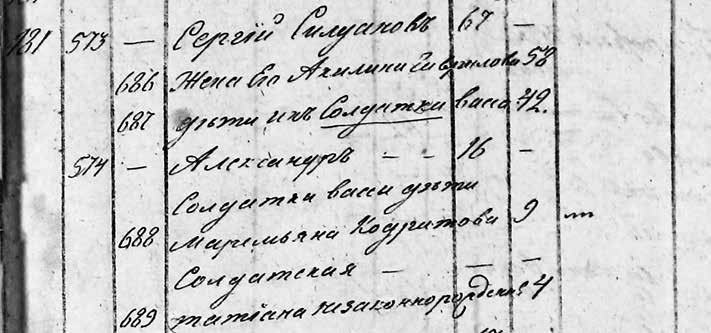 131 573 — Сергій Силуановъ 67 —
686 Жена Его Акилина Гаврилова 58
687 дѣти ихъ Солдатки васа 42.
574 — Александръ — — 16 —
Солдатки васи дѣти
688 Маремьяна Кодратова 9
Солдатская — — —
689 татіана незаконнорожденна 4